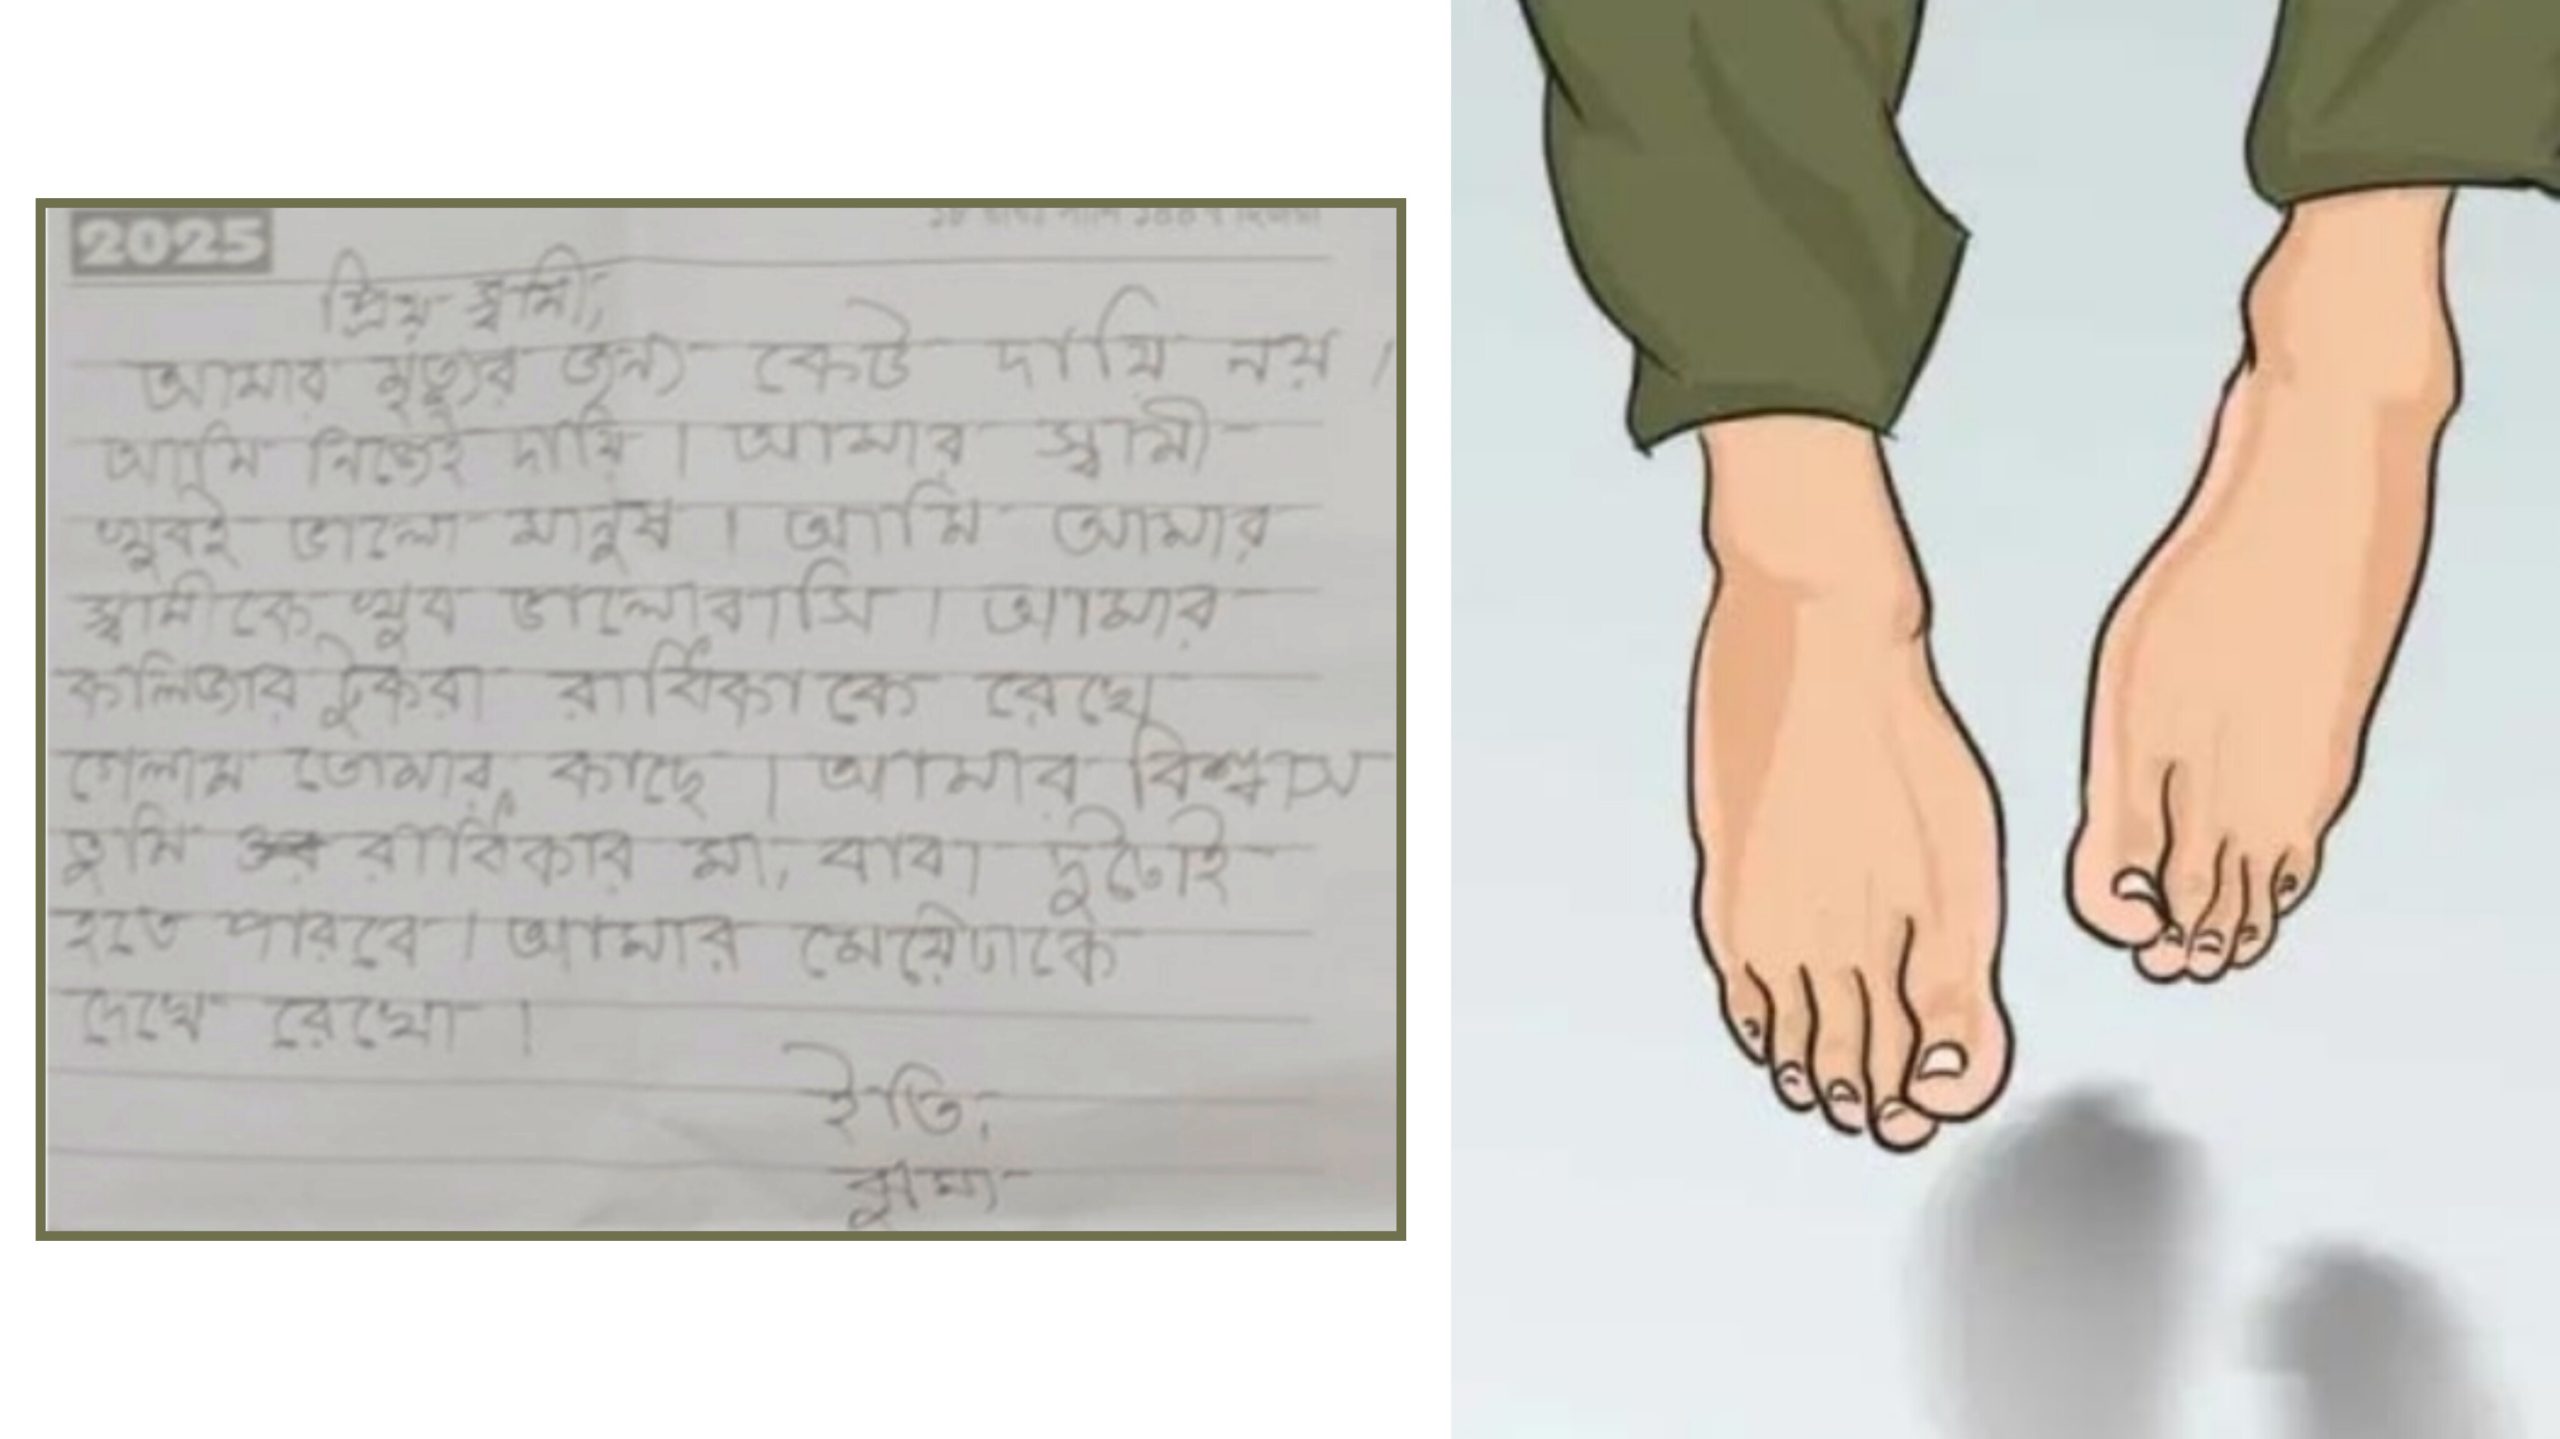 2025
প্রিয় স্বামী,
আমার মৃত্যুর জন্য কেউ দায়ি নয়।
আমি নিজেই দায়ি। আমার স্বামী
খুবই ভালো মানুষ। আমি আমার
স্বামীকে খুব ভালোবাসি। আমার
কলিজার টুকরা রার্বিকাকে রেখে
গেলাম তোমার কাছে। আমার বিশ্বাস
তুমি রার্বিকার মা, বাবা দুটোই
হতে পারবে। আমার মেয়েটাকে
দেখে রেখো।
ইতি,
ঝুমা